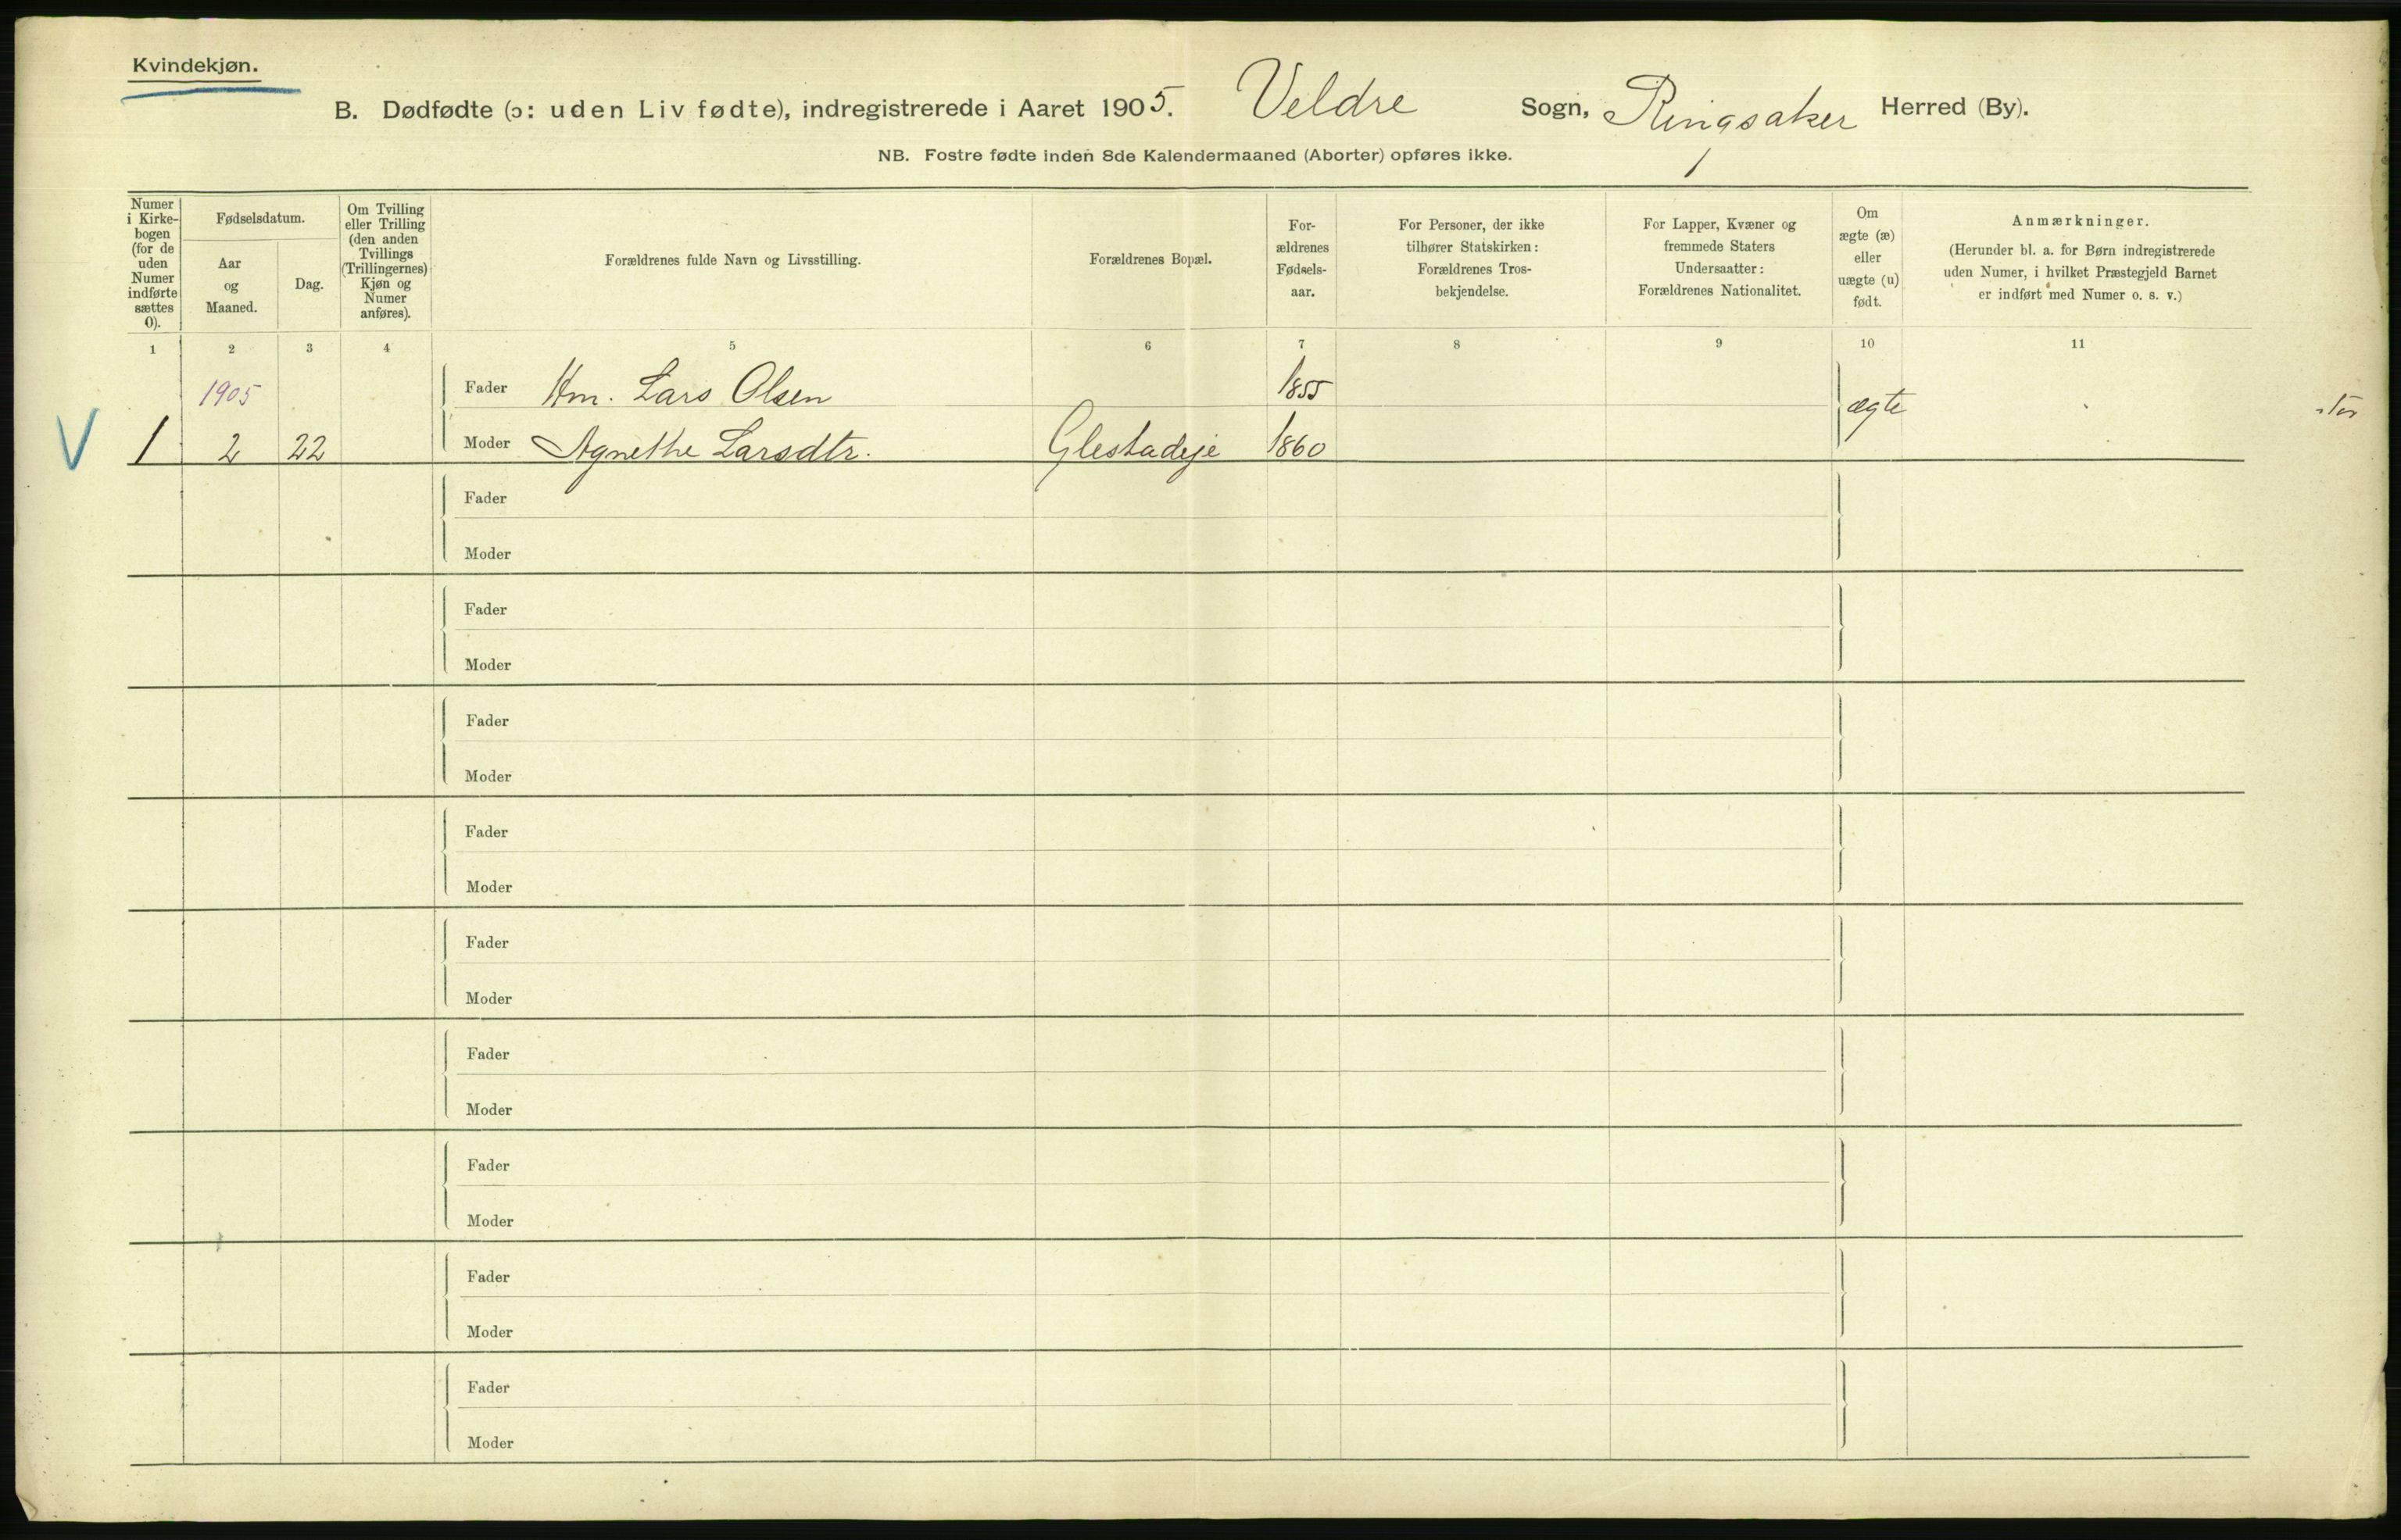 Kvindekjøn.
B. Dødfødte (ɔ: uden Liv fødte), indregistrerede i Aaret 1905. Veldre Sogn, Ringsaker Herred (By).
NB. Fostre fødte inden 8de Kalendermaaned (Aborter) opføres ikke.
Numer i Kirkebogen (for de uden Numer indførte sættes 0).
Fødselsdatum.
Aar og Maaned.
Dag.
Om Tvilling eller Trilling (den anden Tvillings (Trillingernes) Kjøn og Numer anføres).
Forældrenes fulde Navn og Livsstilling.
Forældrenes Bopæl.
Forældrenes Fødselsaar.
For Personer, der ikke tilhører Statskirken: Forældrenes Trosbekjendelse.
For Lapper, Kvæner og fremmede Staters Undersaatter: Forældrenes Nationalitet.
Om ægte (æ) eller uægte (u) født.
Anmærkninger.
(Herunder bl. a. for Børn indregistrerede uden Numer, i hvilket Præstegjeld Barnet er indført med Numer o. s. v.)
1 2 3 4 5 6 7 8 9 10 11
1905 Fader Hm. Lars Olsen 1855 ægte
V 1 2 22 Moder Agnethe Larsdtr. Glestadeje 1860
Fader
Moder
Fader
Moder
Fader
Moder
Fader
Moder
Fader
Moder
Fader
Moder
Fader
Moder
Fader
Moder
Fader
Moder